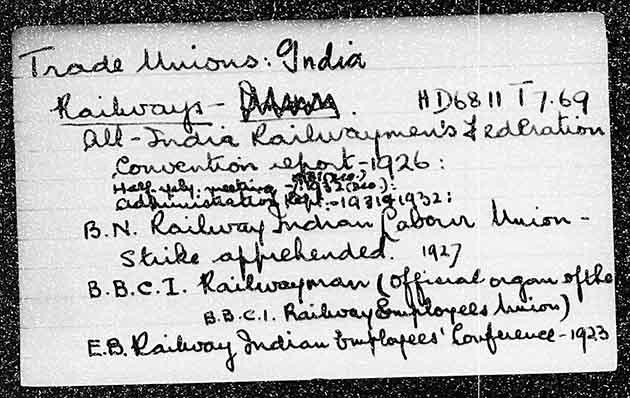 Trade Unions: India
Railways - HD6811 T7.69
All-India Railwaymen's Federation
Convention report - 1926:
Half-yrly. meeting - 1931 (Dec.) 1932 (Dec.):
Administration Rept. - 1932:
B.N. Railway Indian Labour Union -
Strike apprehended. 1927
B.B.C.I. Railwayman (official organ of the
B.B.C.I. Railway Employees Union)
E.B. Railway Indian Employees' Conference - 1923